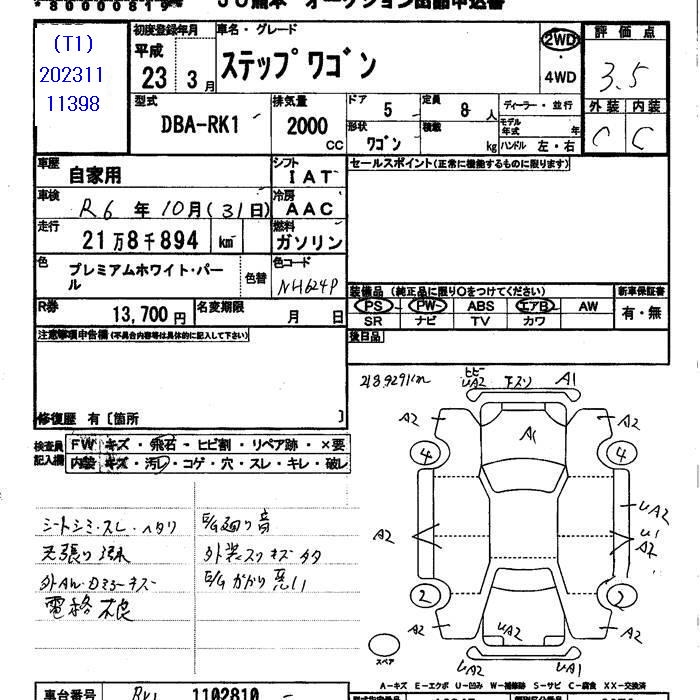 (T1)
202311
11398
初度登録年月
平成
23 3月
車名・グレード
ステップワゴン
2WD
・
4WD
評価点
3.5
外装 内装
C C
型式
DBA-RK1
排気量
2000
CC
ドア 5
定員 8 人
形状 ワゴン
積載 kg
ディーラー・並行
モデル年式 年
ハンドル 左・右
車歴
自家用
シフト
IAT
セールスポイント(正常に機能するものに限ります)
車検
R6 年 10月(31日)
冷房
AAC
走行
21万8千894 km
燃料
ガソリン
色
プレミアムホワイト・パール
色替
色コード
NH624P
装備品 (純正品に限り○をつけてください)
新車保証書
PS PW ABS エアB AW
有・無
SR ナビ TV カワ
R券
13,700円
名変期限
月 日
後日品
注意事項申告欄(不具合内容等は具体的に記入して下さい)
修復歴 有〔箇所 〕
218929km
UA2 下スリ A1
A2 A2
A1
4 4
A2 UA2
A2
2 2
A2 UA2 A2
UA2 UA1
スペア
検査員記入欄
FW キズ・飛石・ヒビ割・リペア跡・×要
内装 キズ・汚レ・コゲ・穴・スレ・キレ・破レ
シートシミ・スレ・ヘタリ
E/G廻り音
天張り
外装スリキズ
電格不良
E/Gかかり悪い
A-キズ E-エクボ U-凹み W-補修跡 S-サビ C-腐食 XX-交換済
車台番号
RK1 1102810